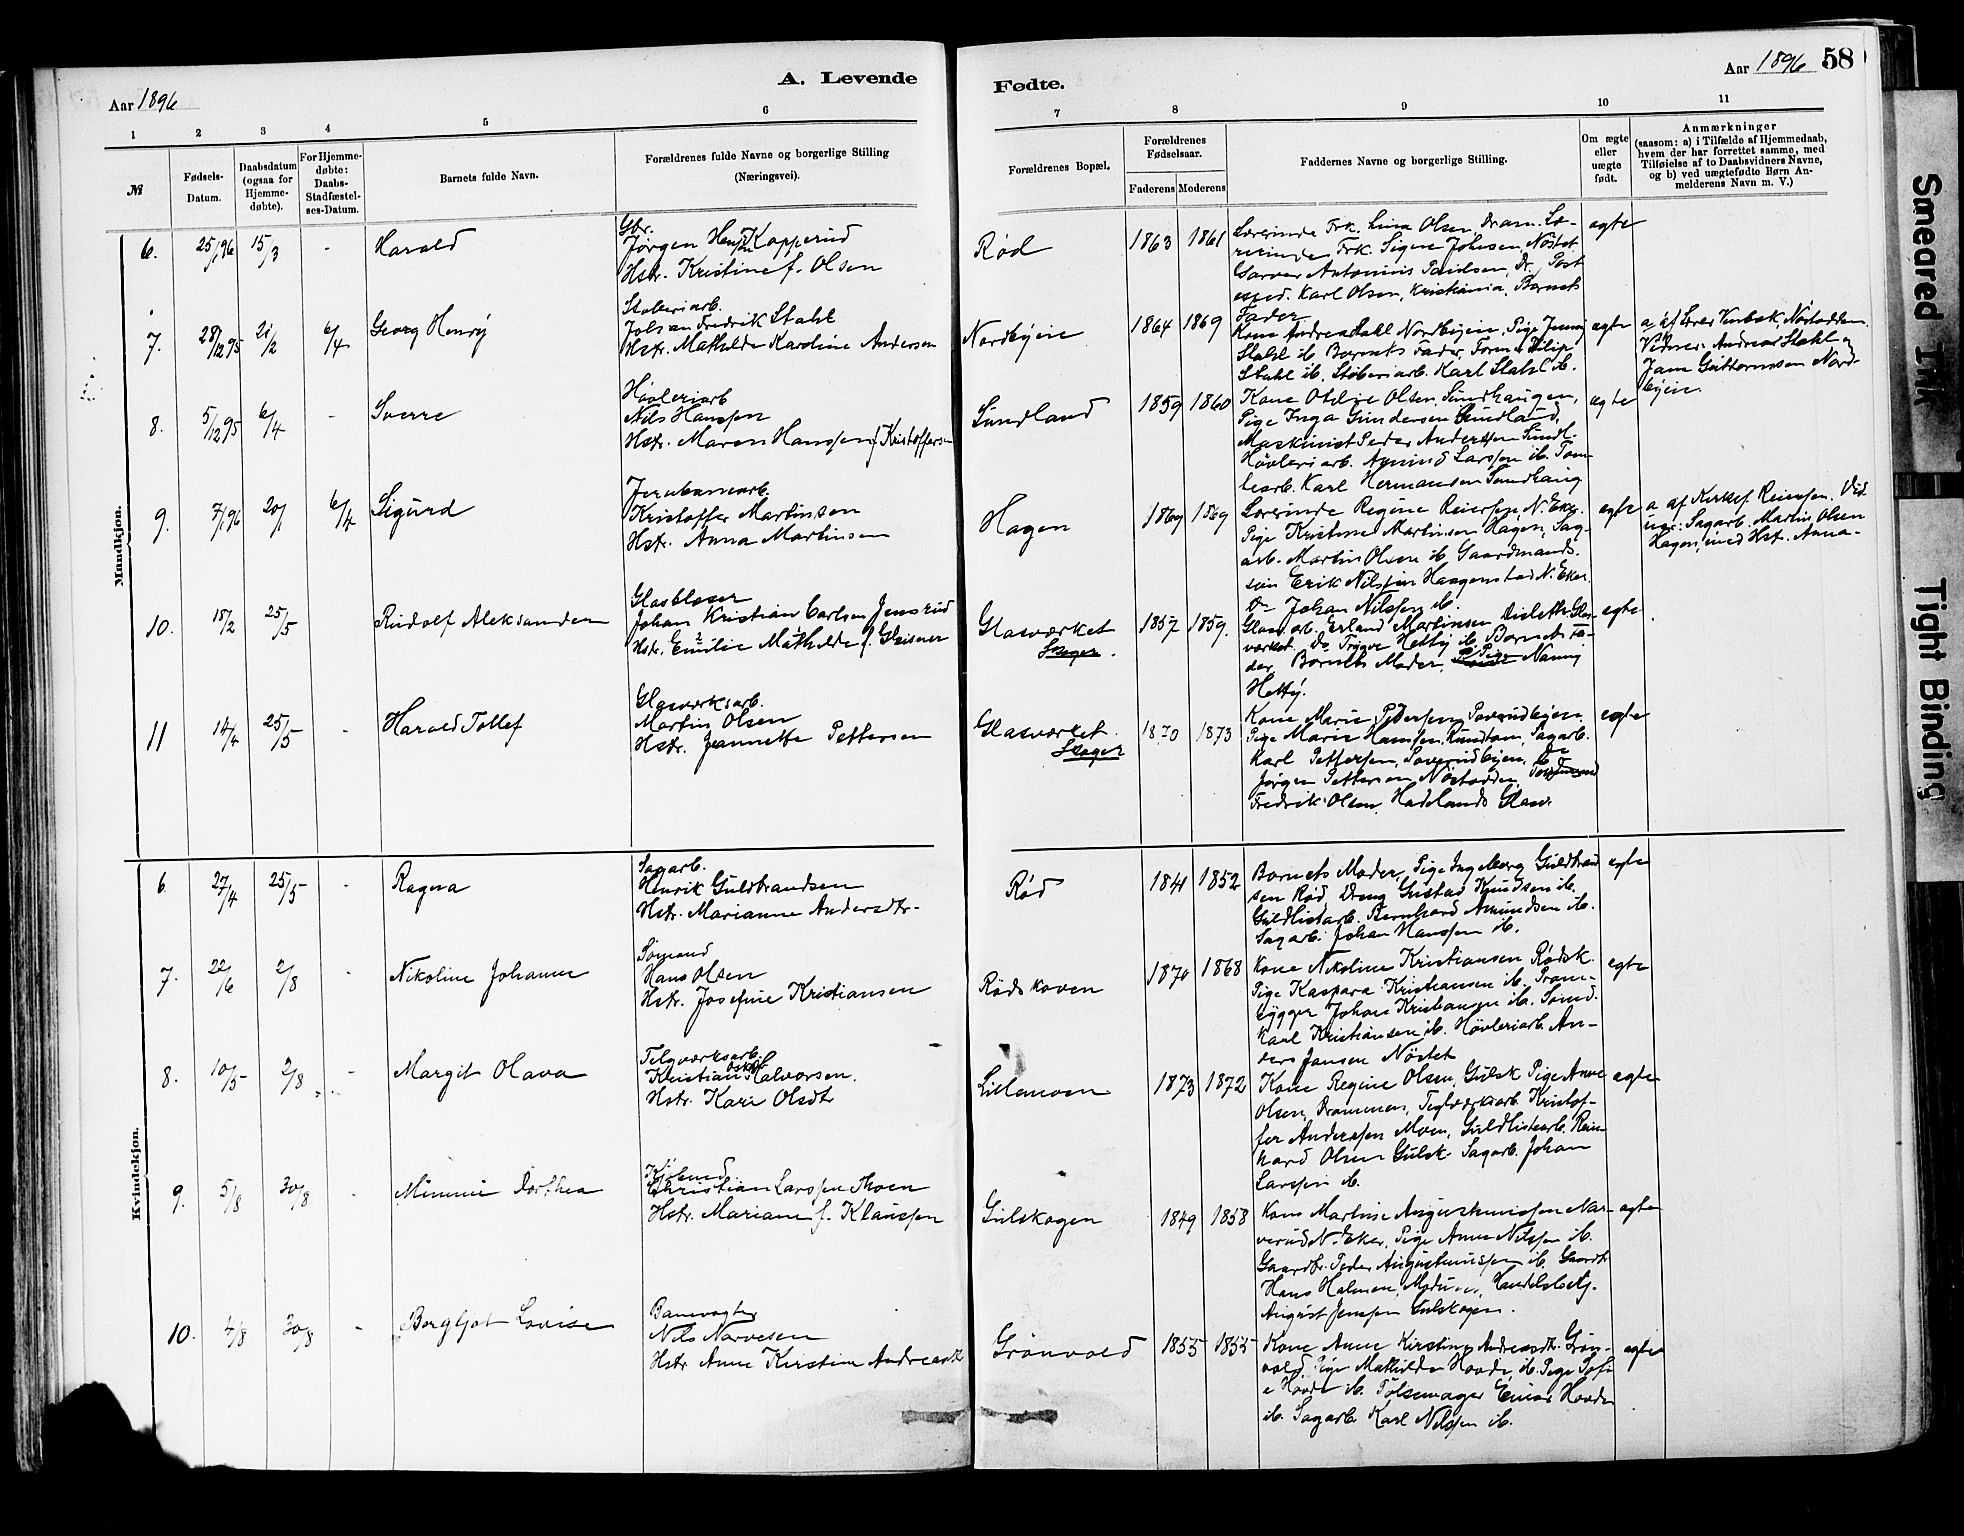 Aar 1896
A. Levende
Fødte.
Aar 1896
58
1 2 3 4 5 6 7 8 9 10 11
№
Fødsels-Datum.
Daabsdatum (ogsaa for Hjemme-døbte).
For Hjemme-døbte: Daabs-Stadfæstel-ses-Datum.
Barnets fulde Navn.
Forældrenes fulde Navne og borgerlige Stilling (Næringsvei).
Forældrenes Bopæl.
Forældrenes Fødselsaar.
Faderens Moderens
Faddernes Navne og borgerlige Stilling.
Om ægte eller uægte født.
Anmærkninger
(saasom: a) i Tilfælde af Hjemmedaab,
hvem der har forrettet samme, med
Tilføielse af to Daabsvidners Navne,
og b) ved uægtefødte Børn An-
melderens Navn m. V.)
Mandkjøn.
6. 25/1 96 15/3 - Harald
Gbr.
Jørgen Kopperud
Hstr. Kristine f. Olsen
Rød 1863 1861
Lærerinde Frk. Lina Olsen, Dram. Læ-
rerinde Frk. Signe Johnsen, Nøstet
Garver Antonius Paulsen, Dr. Post
exped. Karl Olsen, Kristiania. Barnets
Fader
ægte
7. 28/12 95 21/2 6/4 Georg Henry
Støberiarb.
Johan Fredrik Stahl
Hstr. Mathilde Karoline Andersen
Nordbyeie 1864 1869
Kone Andrea Dahl Nordbyeie, Pige Jenny
Stahl ib. Barnets Fader, Former Filip
Stahl ib. Støberiarb. Karl Stahl ib.
ægte
a af Lærer Nøstodden.
Vidner: Andreas Stahl og
Jane Guttormsen Nord-
byeie
8. 5/12 95 6/4 - Sverre
Høvleriarb
Nils Hanssen
Hstr. Maren Hanssen f Kristoffersen
Sundland 1859 1860
Kone Otilie Olsen, Sundhaugen,
Pige Inga Gundersen Sundland,
Maskinist Peder Anderssen Sundl.
Høvleriarb. Amund Larssen ib. Tom-
tearb. Karl Hermansen Sundhaug
ægte
9. 7/1 96 20/1 6/4 Sigurd
Jernbanearb.
Kristoffer Martinsen
Hstr. Anna Martinsen
Hagen 1869 1869
Lærerinde Regine Reiersen N. Eker
Pige Kristine Martinsen Hagen, Sag-
arb. Martin Olsen ib Gaardmands-
søn Erik Nilssen Haagenstad N. Eker.
Do Johan Nilssen ib.
ægte
a af Kirkes. Reiersen. Vid
ner: Sagarb. Martin Olsen
Hagen, med Hst. Anna-
10. 18/2 25/5 Rudolf Aleksander
Glasblæser
Johan Kristian Carlsen Jensrud
Hstr. Emilie Mathilde f. Gleisner
Glasværket
Skoger. 1857 1859.
Glasarb. Erland Martinsen Glas-
værket. Do Trygve Hetty ib Barnets Fa-
der, Barnets Moder, Pige Nanny
Hetty.
ægte
11 14/4 25/5 - Harald Tollef
Glasværksarb.
Martin Olsen
Hstr. Jeannette Pettersen
Glasværket.
Skoger 1870 1873
Kone Marie Pedersen, Poverudbyen
Pige Marie Hanssen, Sagarb.
Karl Pettersen, Poverudbyen,
Jørgen Pettersen Nøstodden
Fredrik Olsen, Hadelands Glasv.
ægte
Kvindekjøn.
6 27/4 25/5 - Ragna
Sagarb.
Henrik Guldbrandsen
Hstr. Marianne Andersdtr.
Rød 1841 1852
Barnets Moder, Pige Ingeborg Guldbrand
sen Rød, Dreng Gustav Knudsen ib.
Guldlistarb. Bernhard Amundsen ib.
Sagarb. Johan Hanssen ib.
ægte
7. 22/6 2/8 - Nikoline Johanne
Sømand
Hans Olsen
Hstr. Josefine Kristiansen
Rødskoven 1870 1868
Kone Nikoline Kristiansen Rødsk.
Pige Kaspara Kristiansen ib. Pram-
bygger Johan Kristiansen ib. Sømd.
Karl Kristiansen ib. Høvleriarb. An-
ders Jansen Nøstet
ægte
8. 10/5 2/8 - Margit Olava
Teglværksarb.
Kristian Oskar Halvorsen.
Hstr. Kari Olsdtr
Lillemoen 1873 1872
Kone Regine Olsen, Gulsk Pige Anne
Olsen, Drammen, Teglværksarb. Kristof-
fer Anderssen Moen, Guldlistearb. Rein-
hard Olsen Gulsk. Sagarb. Johan
Larssen ib.
ægte
9. 5/8 30/8 - Mimmi Dorthea
Kjøbmd
Christian Larssen Moen
Hstr. Mariane f. Klaussen
Gulskogen 1849 1858
Kone Martine Augustinussen Nar-
verud N. Eker, Pige Anne Nilssen ib.
Gaardbr. Peder Augustinussen ib. Gaardbr
Hans Halmen, Handelsbetj.
August Jenssen Gulskogen.
ægte
10. 4/8 30/8 - Borghot Lovise
Banevogter
Nils Narvesen
Hstr Anne Kirstine Andreasdtr
Grønvold 1855 1855
Kone Anne Kirstine Andreasdtr. Grøn-
vold, Pige Mathilde Hovde, ib. Pige Sofi
e Hovde ib. Pølsemager Einar Hovde
ib. Sagarb. Karl Nilssen ib.
ægte
Smeared Ink
Tight Binding